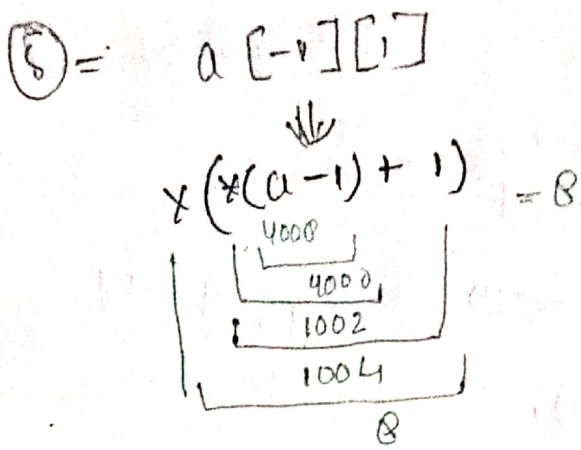 ⑤ = a [-1][1]
⇓
*(*(a-1) + 1) = 8
4008
4000
1002
1004
8